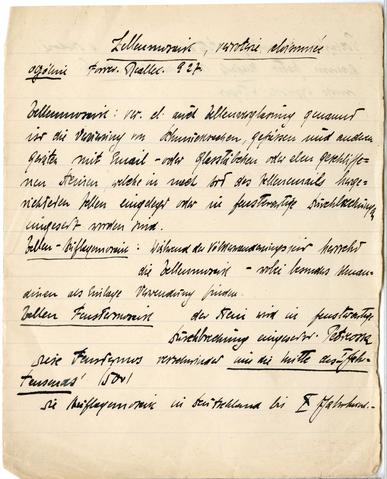 Zellenmosaik, verroterie cloisonnée
ogólnie Forrer. Reallex. 927.
Zellenmosaik: ver. cl. auch Zellenverglasung genannt
ist die Verzierung von Schmucksachen, gefässen und anderen
geräten mit Email- oder Glasstückchen oder eben geschliffe-
nen Steinen, welche in nach Art des Zellenemails herge-
richteten Zellen eingelegt oder in fensterartige Durchbrechungen
eingesetzt worden sind.
Zellen-Auflagemosaik: Während der Völkerwanderungszeit herrscht
die Zellenmosaik - wobei besonders Diaman-
dinen als Einlage Verwendung finden.
Zellen Fenstermosaik der Stein wird in fensterartige
Durchbrechung eingesetzt. Petrossa
diese Fenstermos verschwindet um die Mitte des I Jahr-
tausends 500!
Die Auflagemosaik in Deutschland bis X Jahrhund.-